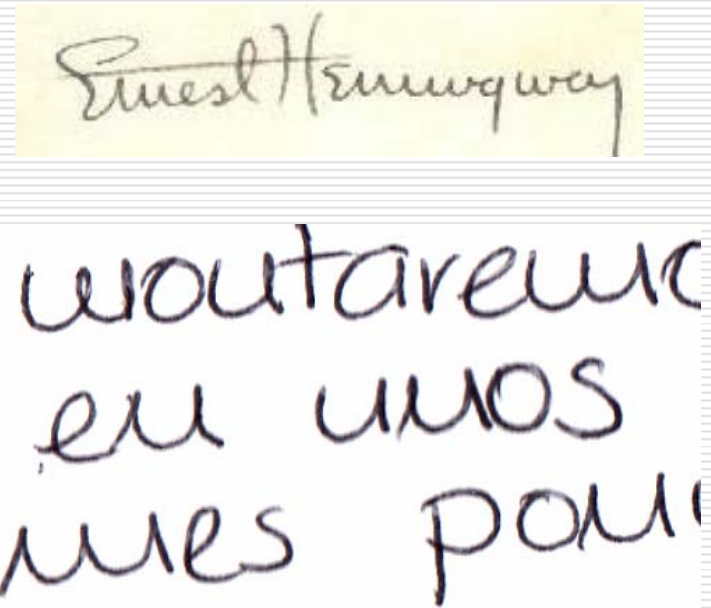 Ernest Hemingway
montaremo
en unos
mes pon